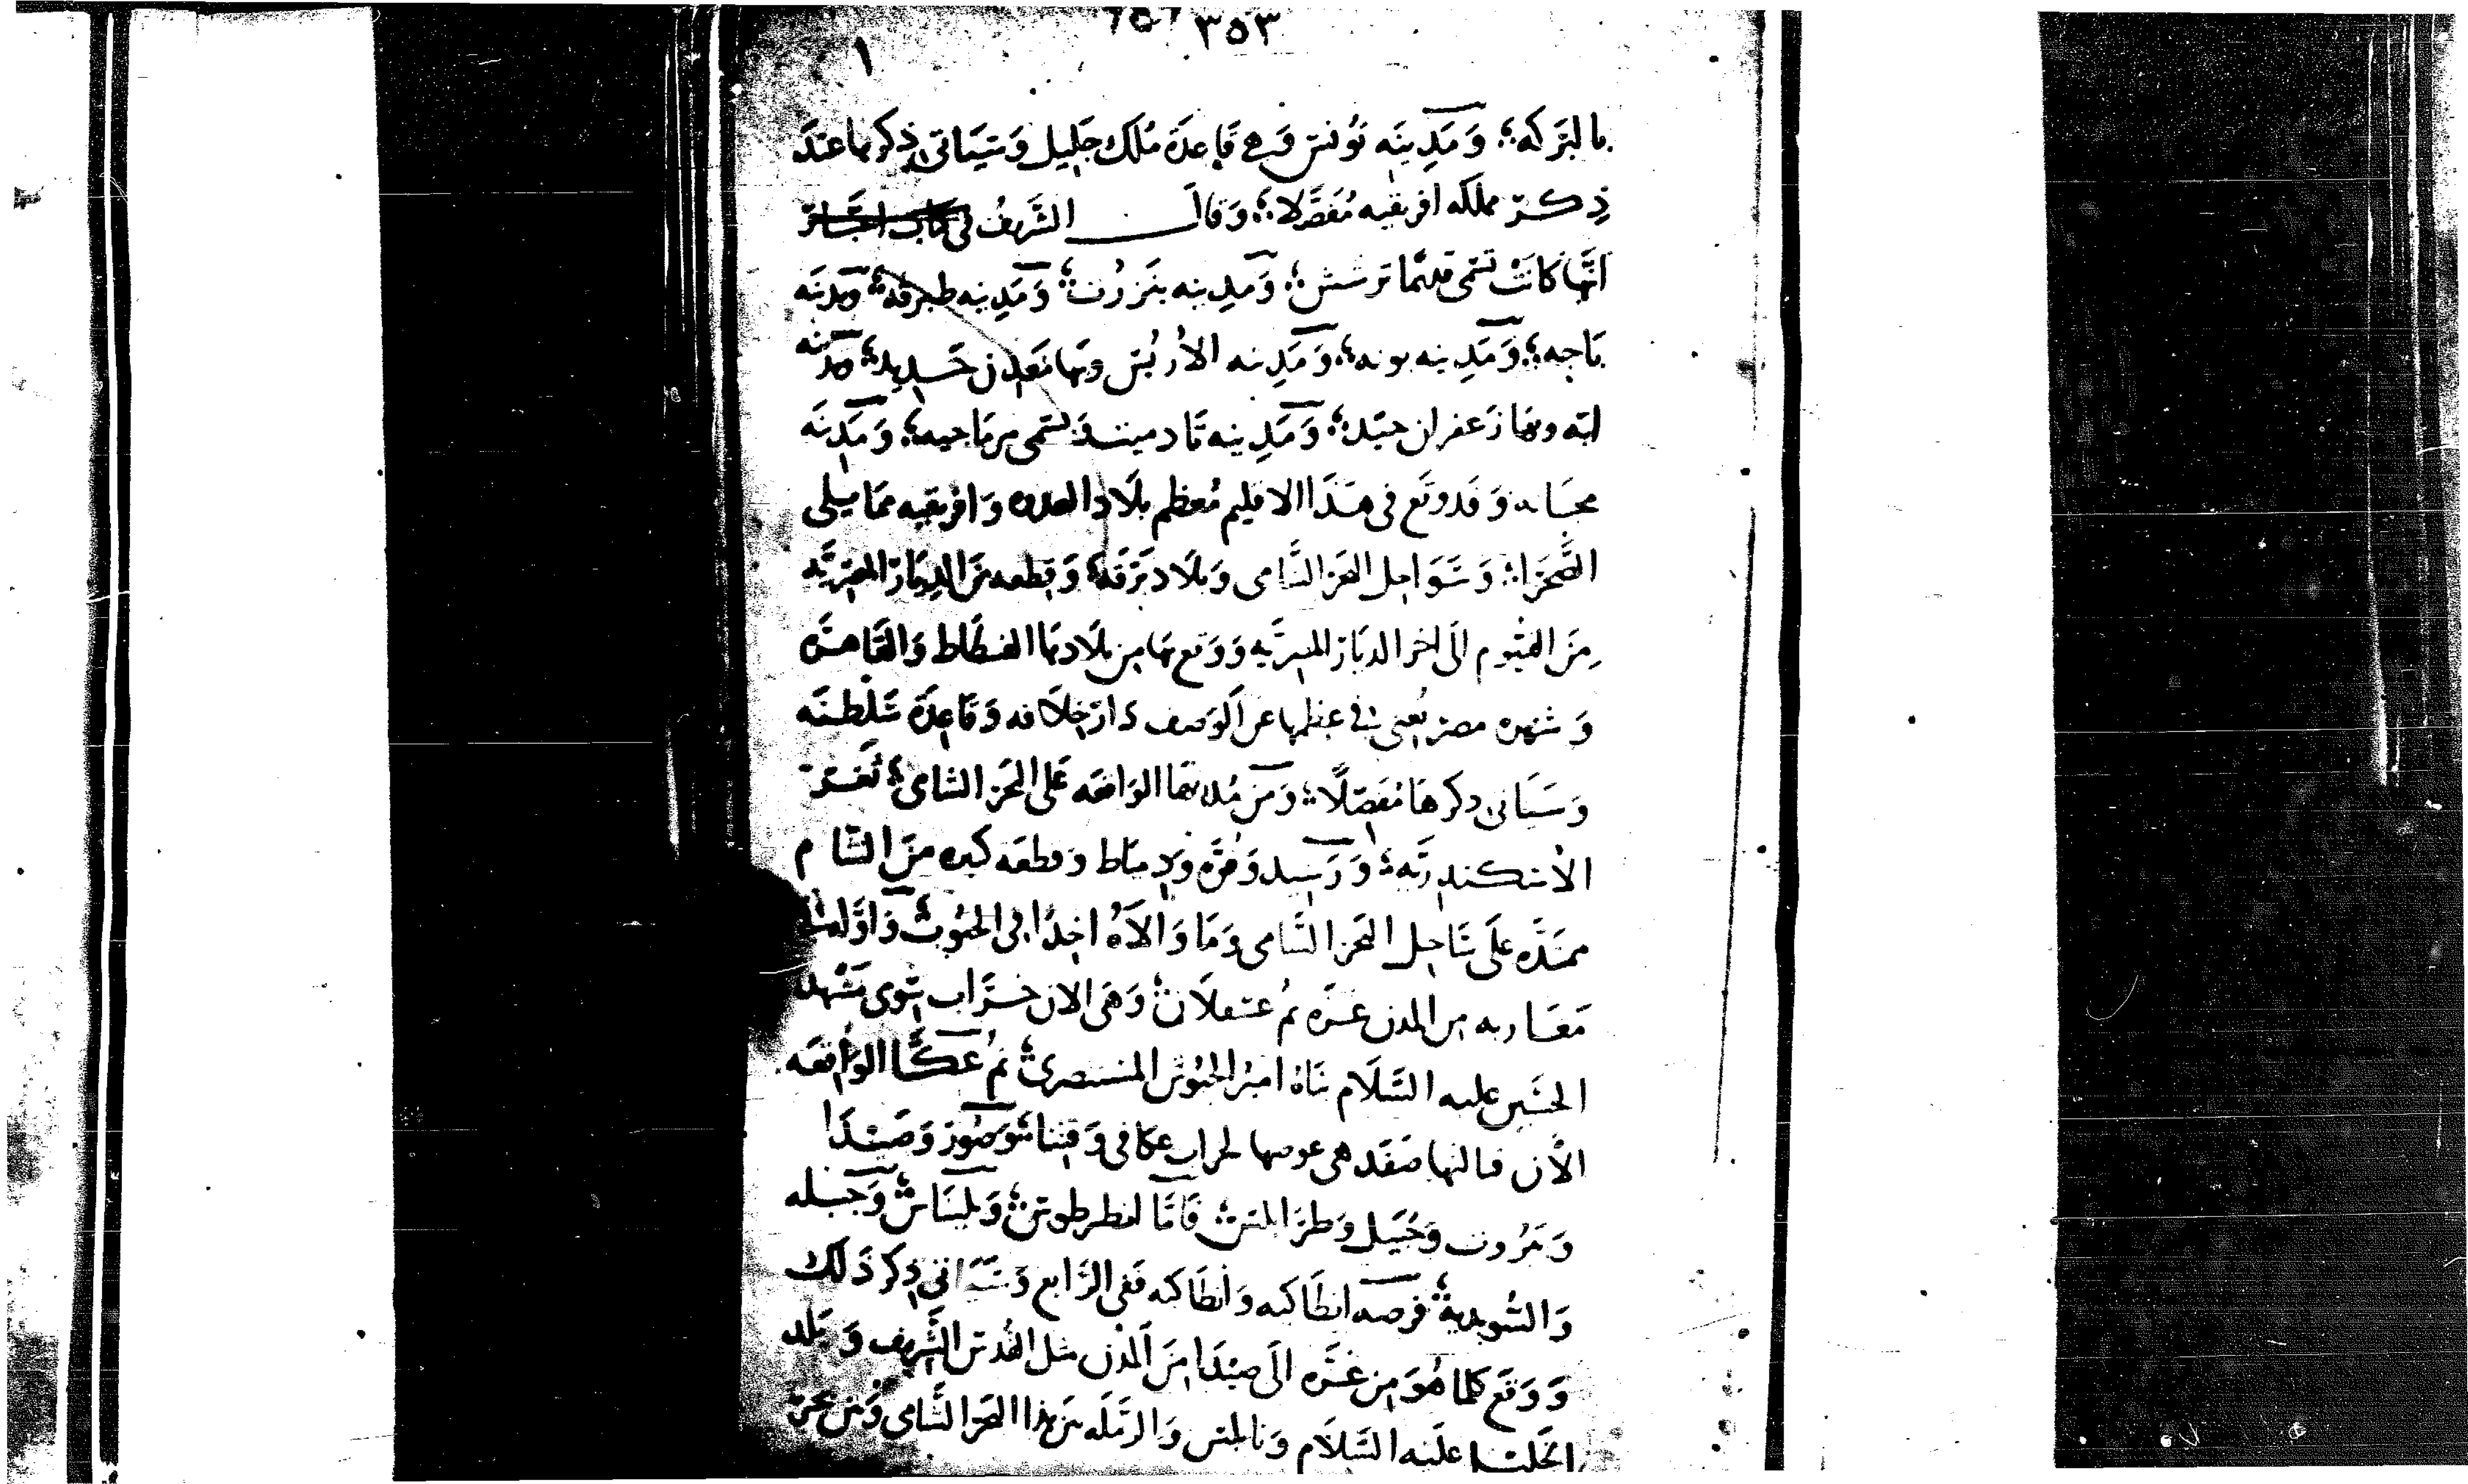 ٢٥٢ ٣٥٣
١
بالبركه ومدينه تونس وهي قاعدة ملك جليل وسياتى ذكرها عند
ذكر مملكه افريقيه مفصلا وقال الشريف فى كتاب
انها كانت تسمى قديما ترشش ومدينه بنزرت ومدينه طبرقه ومدينه
باجه ومدينه بونه ومدينه الأربس وبها معدن حديد ومدينه
ابه وبها زعفران جيد ومدينه تسمى مرماجيه ومدينه
وقد وقع فى هذا الاقليم معظم بلاد العدوه وافريقيه مما يلى
الصحرا وسواحل البحر الشامى وبلاد برقه وقطعه من الديار المصريه
من الفيوم الى اخر الديار المصريه ووقع بها من بلادها الفسطاط والقاهره
وشهره مصر تغنى فى عظمها عن الوصف دار خلافه وقاعدة سلطنه
وسياتى ذكرها مفصلا ومن مدنها الواقعه على البحر الشامى ثغر
الاسكندريه ورشيد وفوه ودمياط وقطعه كبيره من الشام
ممتده على ساحل البحر الشامى وما والاه اخذا فى الجنوب واولها
مغاربه من المدن غزه ثم عسقلان وهى الان خراب سوى مشهد
الحسين عليه السلام بناه امير الجيوش المستنصرى ثم عكا الواقعه
الأن فانها صفد هى عوضها لخراب عكا فى وقتنا وصور وصيدا
وبيروت وجبيل وطرابلس فاما انطرطوس وبلنياس وجبله
والسويديه فرضه انطاكيه وانطاكيه ففى الرابع وسياتى ذكر ذلك
ووقع كلما هو من غزه الى صيدا من المدن مثل القدس الشريف وبلد
الخليل عليه السلام ونابلس والرمله بين هذا البحر الشامى وبين بحر